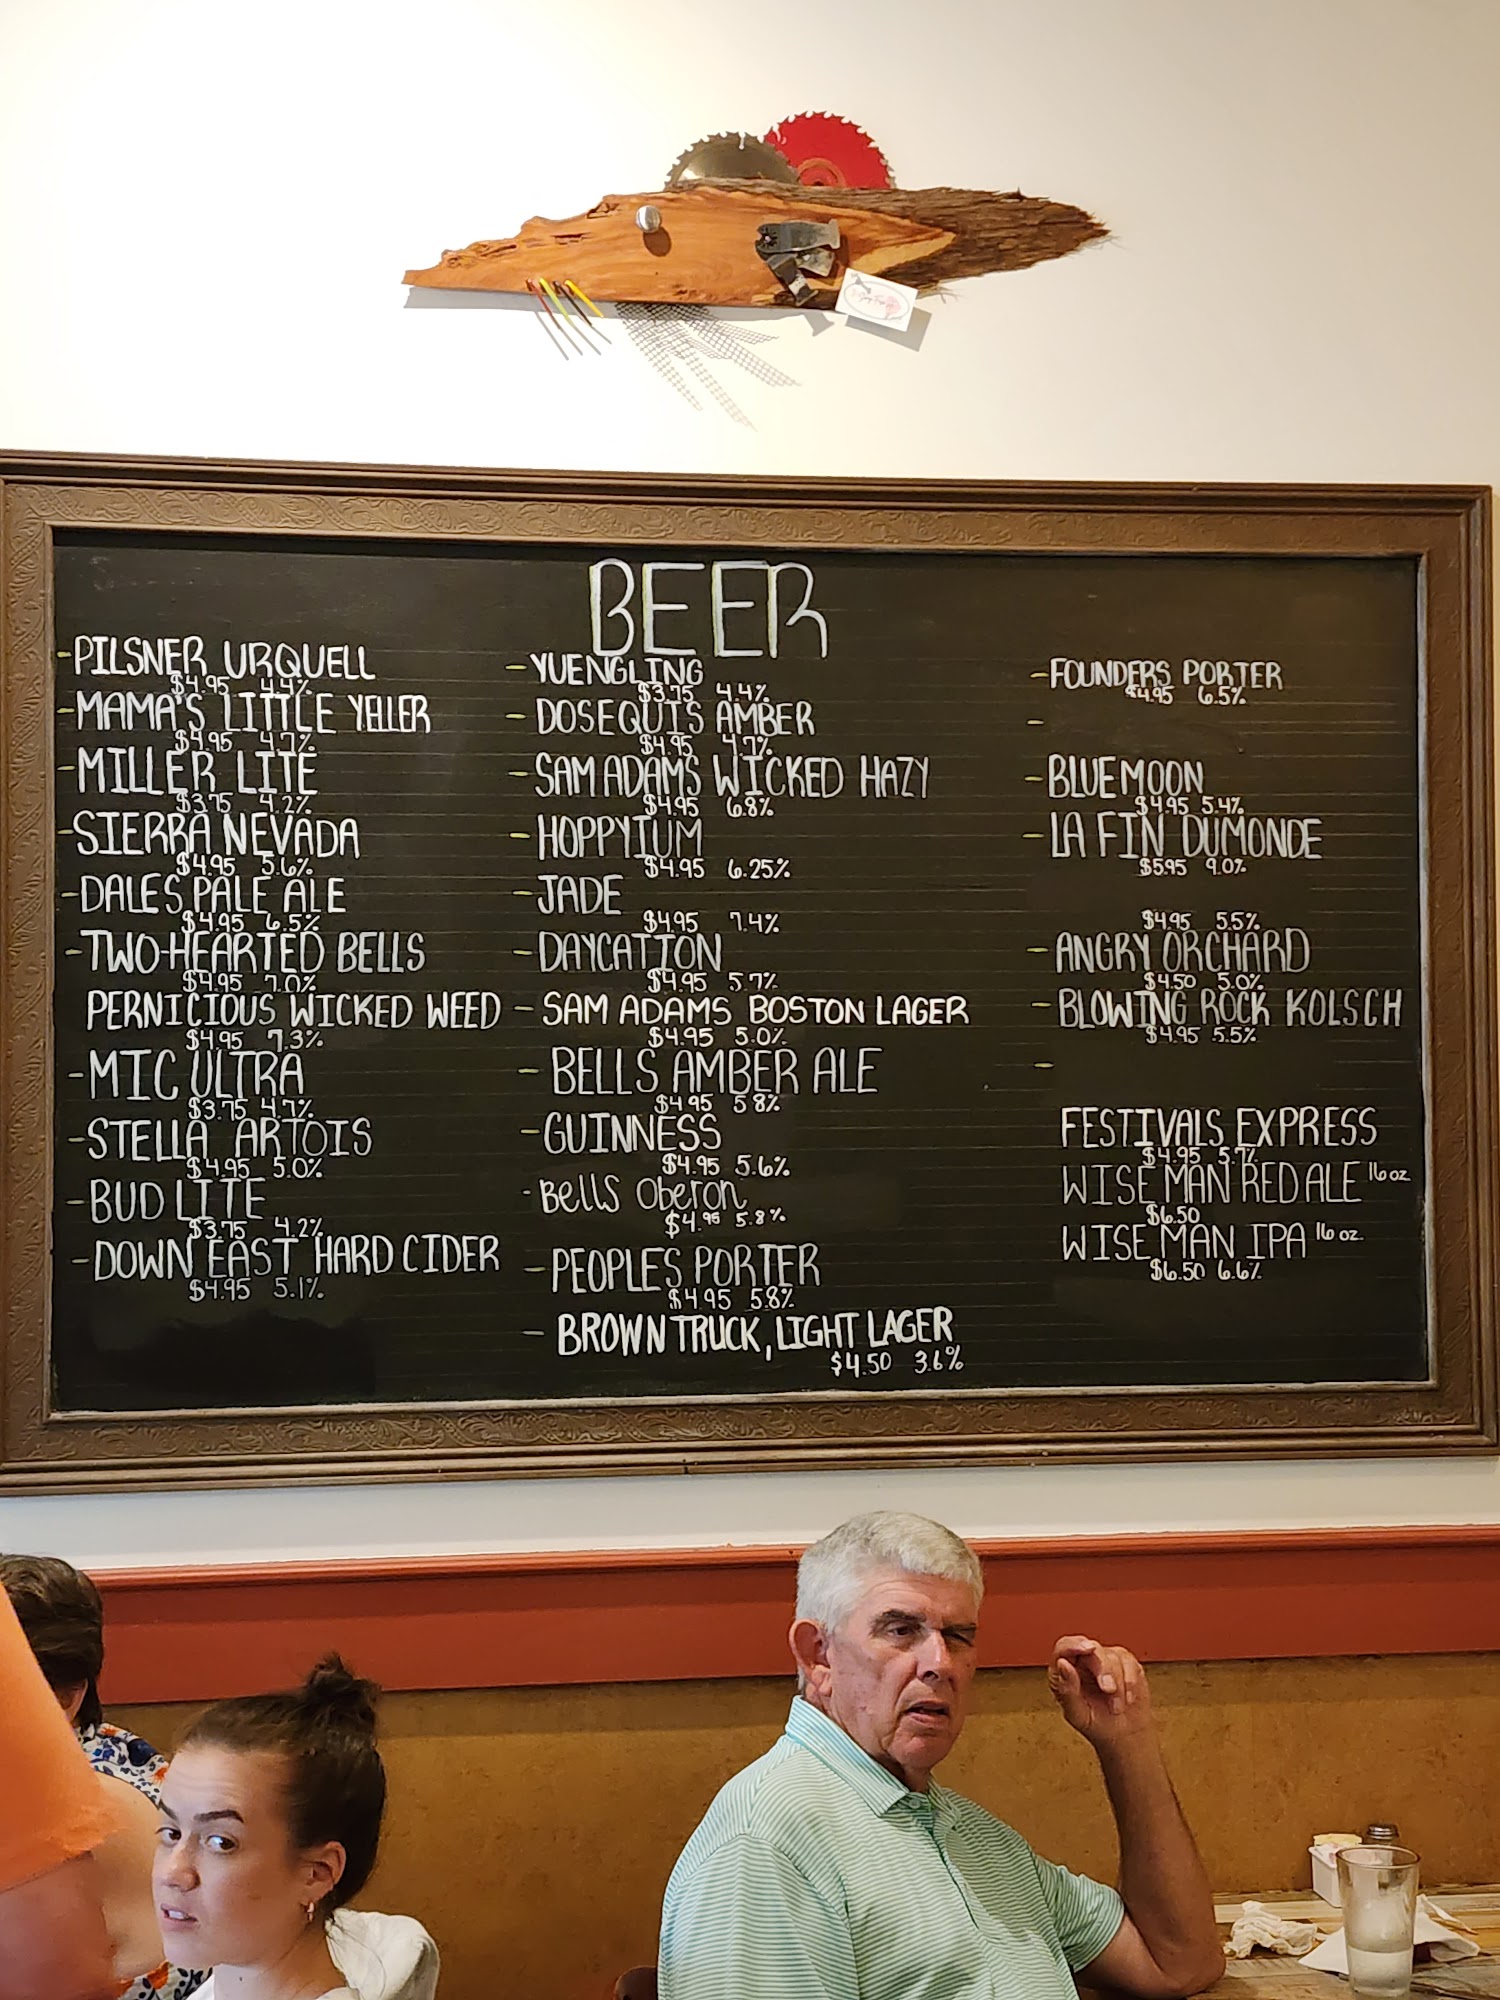 BEER
- PILSNER URQUELL
$4.95 4.4%
- MAMA'S LITTLE YELLER
$4.95 4.7%
- MILLER LITE
$3.75 4.2%
- SIERRA NEVADA
$4.95 5.6%
- DALES PALE ALE
$4.95 6.5%
- TWO-HEARTED BELLS
$4.95 7.0%
PERNICIOUS WICKED WEED
$4.95 7.3%
- MIC ULTRA
$3.75 4.7%
- STELLA ARTOIS
$4.95 5.0%
- BUD LITE
$3.75 4.2%
- DOWN EAST HARD CIDER
$4.95 5.1%
- YUENGLING
$3.75 4.4%
- DOSEQUIS AMBER
$4.95 4.7%
- SAM ADAMS WICKED HAZY
$4.95 6.8%
- HOPPYIUM
$4.95 6.25%
- JADE
$4.95 7.4%
- DAYCATION
$4.95 5.7%
- SAM ADAMS BOSTON LAGER
$4.95 5.0%
- BELLS AMBER ALE
$4.95 5.8%
- GUINNESS
$4.95 5.6%
- Bells Oberon
$4.95 5.8%
- PEOPLES PORTER
$4.95 5.8%
- BROWN TRUCK, LIGHT LAGER
$4.50 3.6%
- FOUNDERS PORTER
$4.95 6.5%
-
- BLUEMOON
$4.95 5.4%
- LA FIN DUMONDE
$5.95 9.0%
$4.95 5.5%
- ANGRY ORCHARD
$4.50 5.0%
- BLOWING ROCK KOLSCH
$4.95 5.5%
-
FESTIVALS EXPRESS
$4.95 5.7%
WISE MAN RED ALE 16 oz
$6.50
WISE MAN IPA 16 oz.
$6.50 6.6%